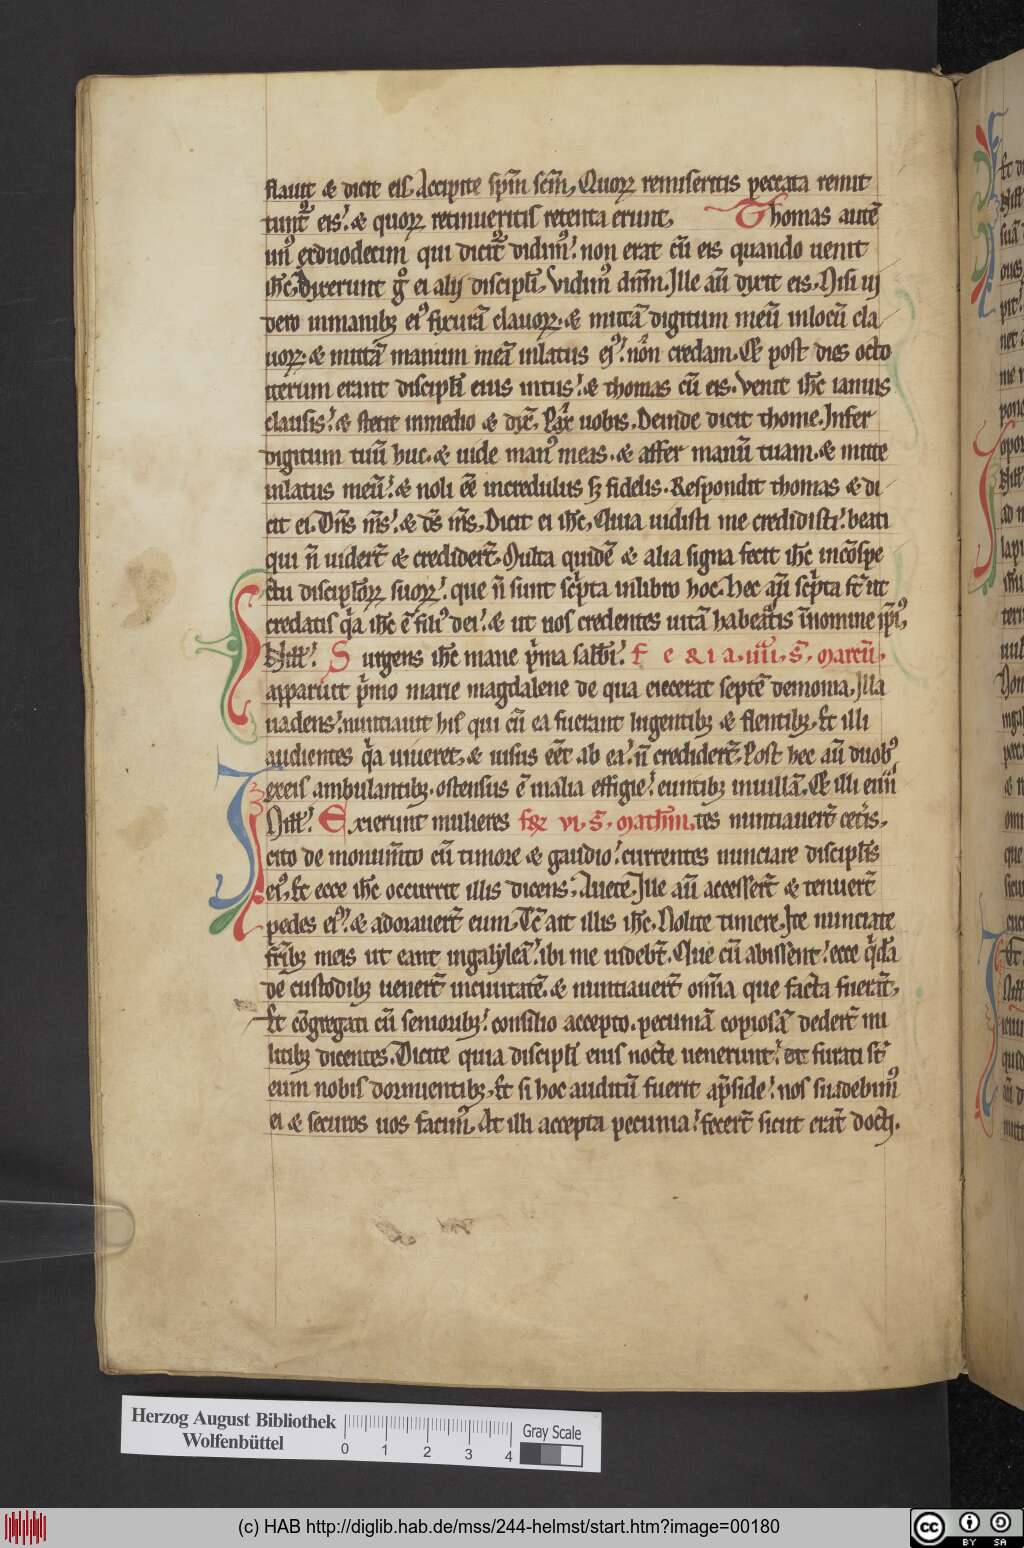 flauit & dicit eis. Accipite sp̄m sc̄m, Quoꝝ remiseritis peccata remit
tunt᷑ eis. & quoꝝ retinueritis retenta erunt, Thomas autē
un᷒ exduodecim qui dicit᷑ didim᷒. non erat cū eis quando uenit
ih̅c, Dixerunt gͦ ei alij discipl̅i, Vidim᷒ dn̅m. Ille au̅ dixit eis. Nisi ui
dero inmanibꝫ ei᷒ fixurā clauoꝝ. & mittā digitum meū inlocū cla
uoꝝ. & mittā manum meā inlatus ei᷒. non credam. Et post dies octo
iterum erant discipl̅i eius intus. & thomas cū eis. Venit ih̅c ianuis
clausis. & stetit inmedio & dix̅, Pax uobis, Deinde dicit thome. Infer
digitum tuū huc. & uide man᷒ meas. & affer manū tuam. & mitte
inlatus meū. & noli ee̅ incredulus sꝫ fidelis. Respondit thomas & di
cit ei. Dn̅s m̅s. & d̅s m̅s, Dicit ei ih̅c, Quia uidisti me credidisti. beati
qui n̅ uider̅t & credider̅t. Multa quidē & alia signa fecit ih̅c in cōspe
ctu discipl̅oꝝ suoꝝ. que n̅ sunt scͥpta inlibro hoc. Hec au̅ scͥpta s̅t ut
credatis qͥa ih̅c ē fili᷒ dei. & ut uos credentes uitā habeatis in nomine ip̅i᷒,
Surgens ih̅c mane pͥma sabb̅i. Feria iiii. s̅. marcū.
apparuit pͥmo marie magdalene de qua eiecerat septē demonia, Illa
uadens. nuntiauit his qui cū ea fuerant lugentibꝫ & flentibꝫ, Et illi
audientes qͥa uiueret, & uisus ee̅t ab ea. n̅ credider̅t, Post hec au̅ duob᷒
exeis ambulantibꝫ. ostensus ē inalia effigie. euntibꝫ inuillā. Et illi eun
Exierunt mulieres fꝝ vi. s̅. math̅m, tes nuntiauer̅t cet̅is,
cito de monum̅to cū timore & gaudio. currentes nunciare discipl̅is
ei᷒. Et ecce ih̅c occurrit illis dicens. Auete, Ille au̅ accesser̅t & tenuer̅t
pedes ei᷒. & adorauer̅t eum, Tc̅ ait illis ih̅c. Nolite timere, Ite nunciate
fr̅ibꝫ meis ut eant ingalyleā. ibi me uideb̅t. Que cū abissent. ecce qͥdā
de custodibꝫ uener̅t inciuitatē. & nuntiauer̅t om̅ia que facta fuerāt,
Et cōgregati cū senioribꝫ. consilio accepto. pecuniā copiosā deder̅t mi
litibꝫ dicentes. Dicite quia discipl̅i eius nocte uenerunt. et furati s̅t
eum nobis dormientibꝫ, Et si hoc auditū fuerit ap̅side. nos suadebim᷒
ei & securos uos facim᷒. At illi accepta pecunia. fecer̅t sicut erāt docti.
Herzog August Bibliothek
Wolfenbüttel
0 1 2 3 4
Gray Scale
(c) HAB http://diglib.hab.de/mss/244-helmst/start.htm?image=00180
cc BY SA